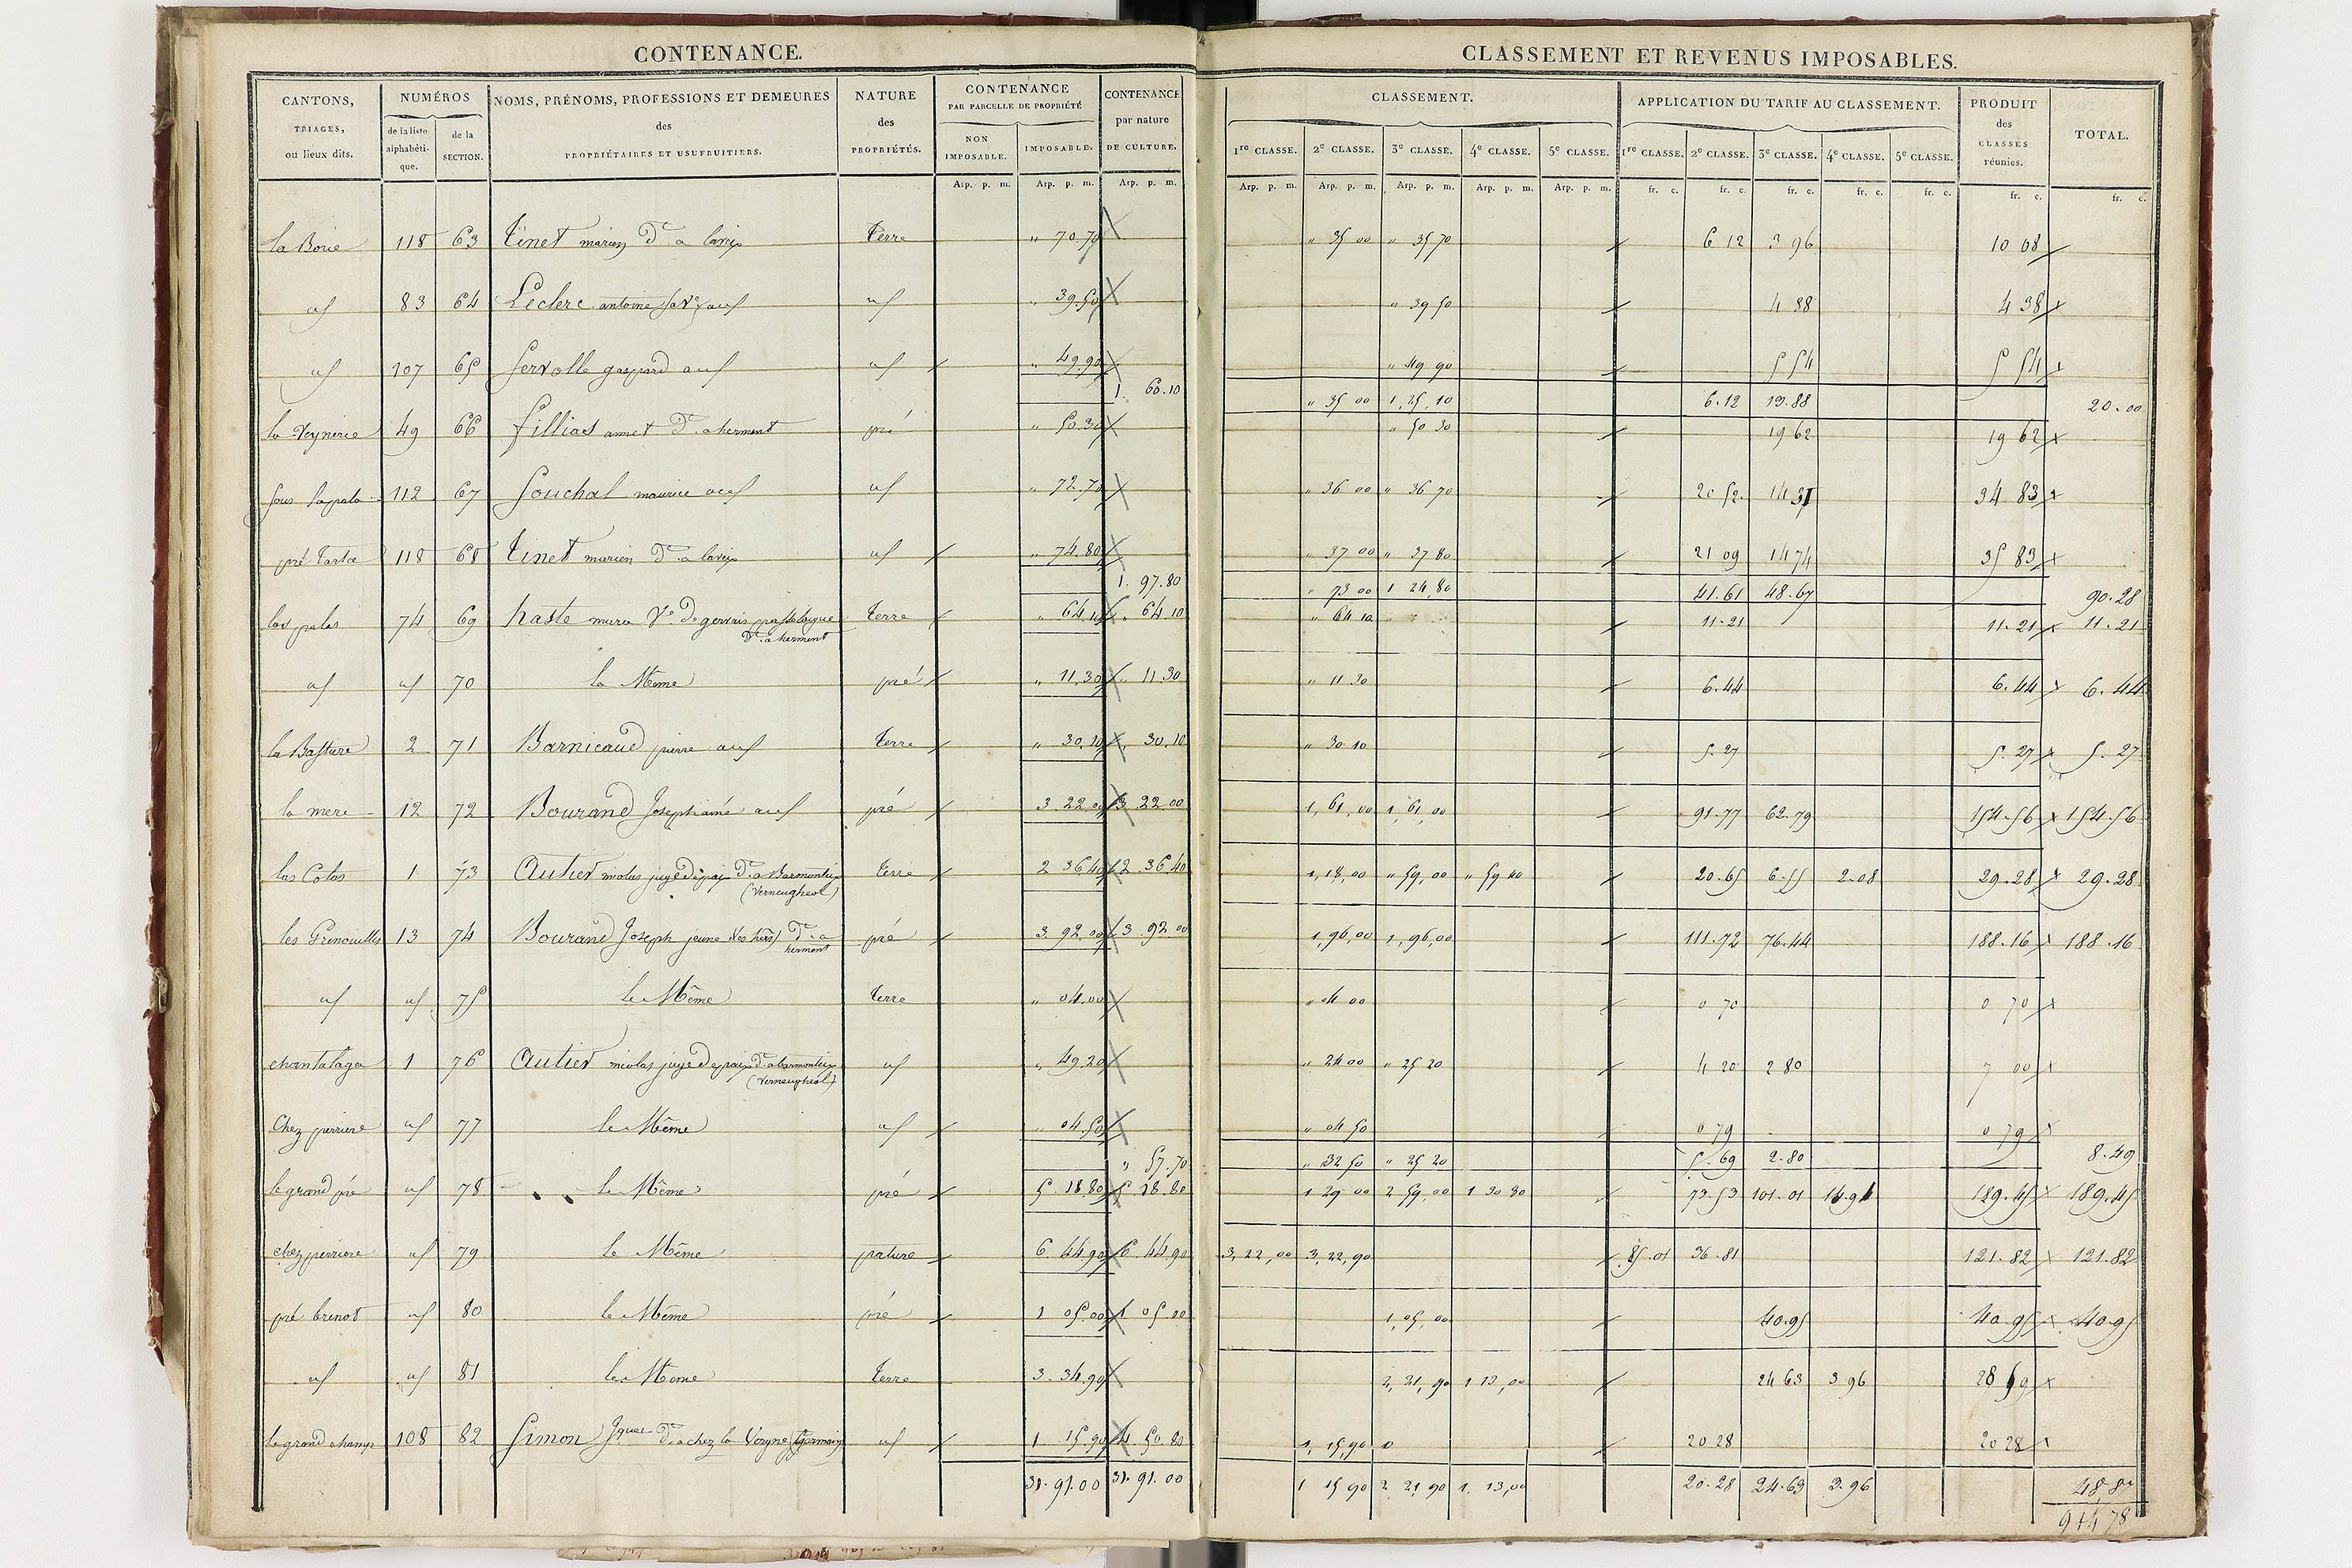 CONTENANCE.
CLASSEMENT ET REVENUS IMPOSABLES.
CANTONS, TRIAGES, ou lieux dits.
NUMÉROS
de la liste alphabétique.
de la SECTION.
NOMS, PRÉNOMS, PROFESSIONS ET DEMEURES
des
PROPRIÉTAIRES ET USUFRUITIERS.
NATURE des PROPRIÉTÉS.
CONTENANCE PAR PARCELLE DE PROPRIÉTÉ
NON IMPOSABLE.
IMPOSABLE.
CONTENANCE par nature DE CULTURE.
CLASSEMENT.
1re CLASSE. 2e CLASSE. 3e CLASSE. 4e CLASSE. 5e CLASSE.
APPLICATION DU TARIF AU CLASSEMENT.
1re CLASSE. 2e CLASSE. 3e CLASSE. 4e CLASSE. 5e CLASSE.
PRODUIT des CLASSES réunies.
TOTAL.
Arp. p. m. Arp. p. m. Arp. p. m. Arp. p. m. Arp. p. m. Arp. p. m. Arp. p. m. Arp. p. m. fr. c. fr. c. fr. c. fr. c. fr. c. fr. c. fr. c.
la Boue 118 63 Tinet marien dt a Terre " 70.70 " 35 00 " 35 70 6 12 3 96 10 08
id 83 64 Leclerc antoine id " 39.50 " 39 50 4 38 4 38
id 107 65 Servolle gaspard id " 49.90 " 49 90 5 54 5 54
1. 60.10 " 35 00 1, 25, 10 6.12 13.88 20.00
la Veynerie 49 66 fillias annet dt a herment pré " 50.30 " 50 30 19 62 19 62
112 67 Souchal maurice id " 72.70 " 36 00 " 36 70 20 52 14 31 34 83
pré 118 68 Tinet marien dt a id " 74.80 " 37 00 " 37 80 21 09 14 74 35 83
1. 97.80 " 73 00 1 24,80 41.61 48.67 90.28
las palas 74 69 haste Ve de gervais Terre " 64.10 " 64 10 " 64 10 11.21 11.21 11.21
dt a herment
id id 70 la Même pré " 11.30 " 11 30 " 11 30 6.44 6.44 6.44
2 71 Barnicaud pierre Terre " 30.10 " 30.10 " 30 10 5.27 5.27 5.27
la mere 12 72 Bourand Joseph ainé pré 3 22 00 3 22 00 1, 61, 00 1, 61, 00 91.77 62.79 154.56 154.56
las Cotas 1 73 Autier nicolas juge de paix dt a Barmonteix Terre 2 36 40 2 36 40 1, 18, 00 " 59, 00 " 59 40 20.65 6.55 2.08 29.28 29.28
(Verneugheol)
les Grenouilles 13 74 Bourand Joseph jeune (les hers) dt a herment pré 3 92 00 3 92 00 1, 96, 00 1, 96, 00 111.72 76.44 188.16 188.16
id id 75 le Même Terre " 04.00 " 04 00 0 70 0 70
chantalaga 1 76 Autier nicolas juge de paix dt a barmonteix id " 49.20 " 24 00 " 25 20 4 20 2 80 7 00
(Verneugheol)
Chez perriere id 77 le Même id " 04.50 " 04 50 0 79 0 79
" 57.70 " 32 50 " 25 20 5.69 2.80 8.49
le grand pré id 78 le Même pré 5 18 80 5 18 80 1 29 00 2 59, 00 1 30 80 73.53 101.01 14.91 189.45 189.45
chez perriere id 79 le Même pature 6 44 90 6 44 90 3, 22, 00 3, 22, 90 85.01 36.81 121.82 121.82
pré brenot id 80 le Même pré 1 05 00 1 05 00 1, 05, 00 40.95 40.95 40.95
id id 81 le Même Terre 3. 34.90 2, 21, 90 1 13, 00 24 63 3 96 28 59
le grand champ 108 82 Simon Jques dt a chez la Veyne (St germain) id 1 15.90 4 50.80 1, 15, 90 20 28 20 28
31. 91. 00 31. 91. 00 1 15 90 2 21 90 1. 13, 00 20.28 24.63 3.96 48.87
944 78